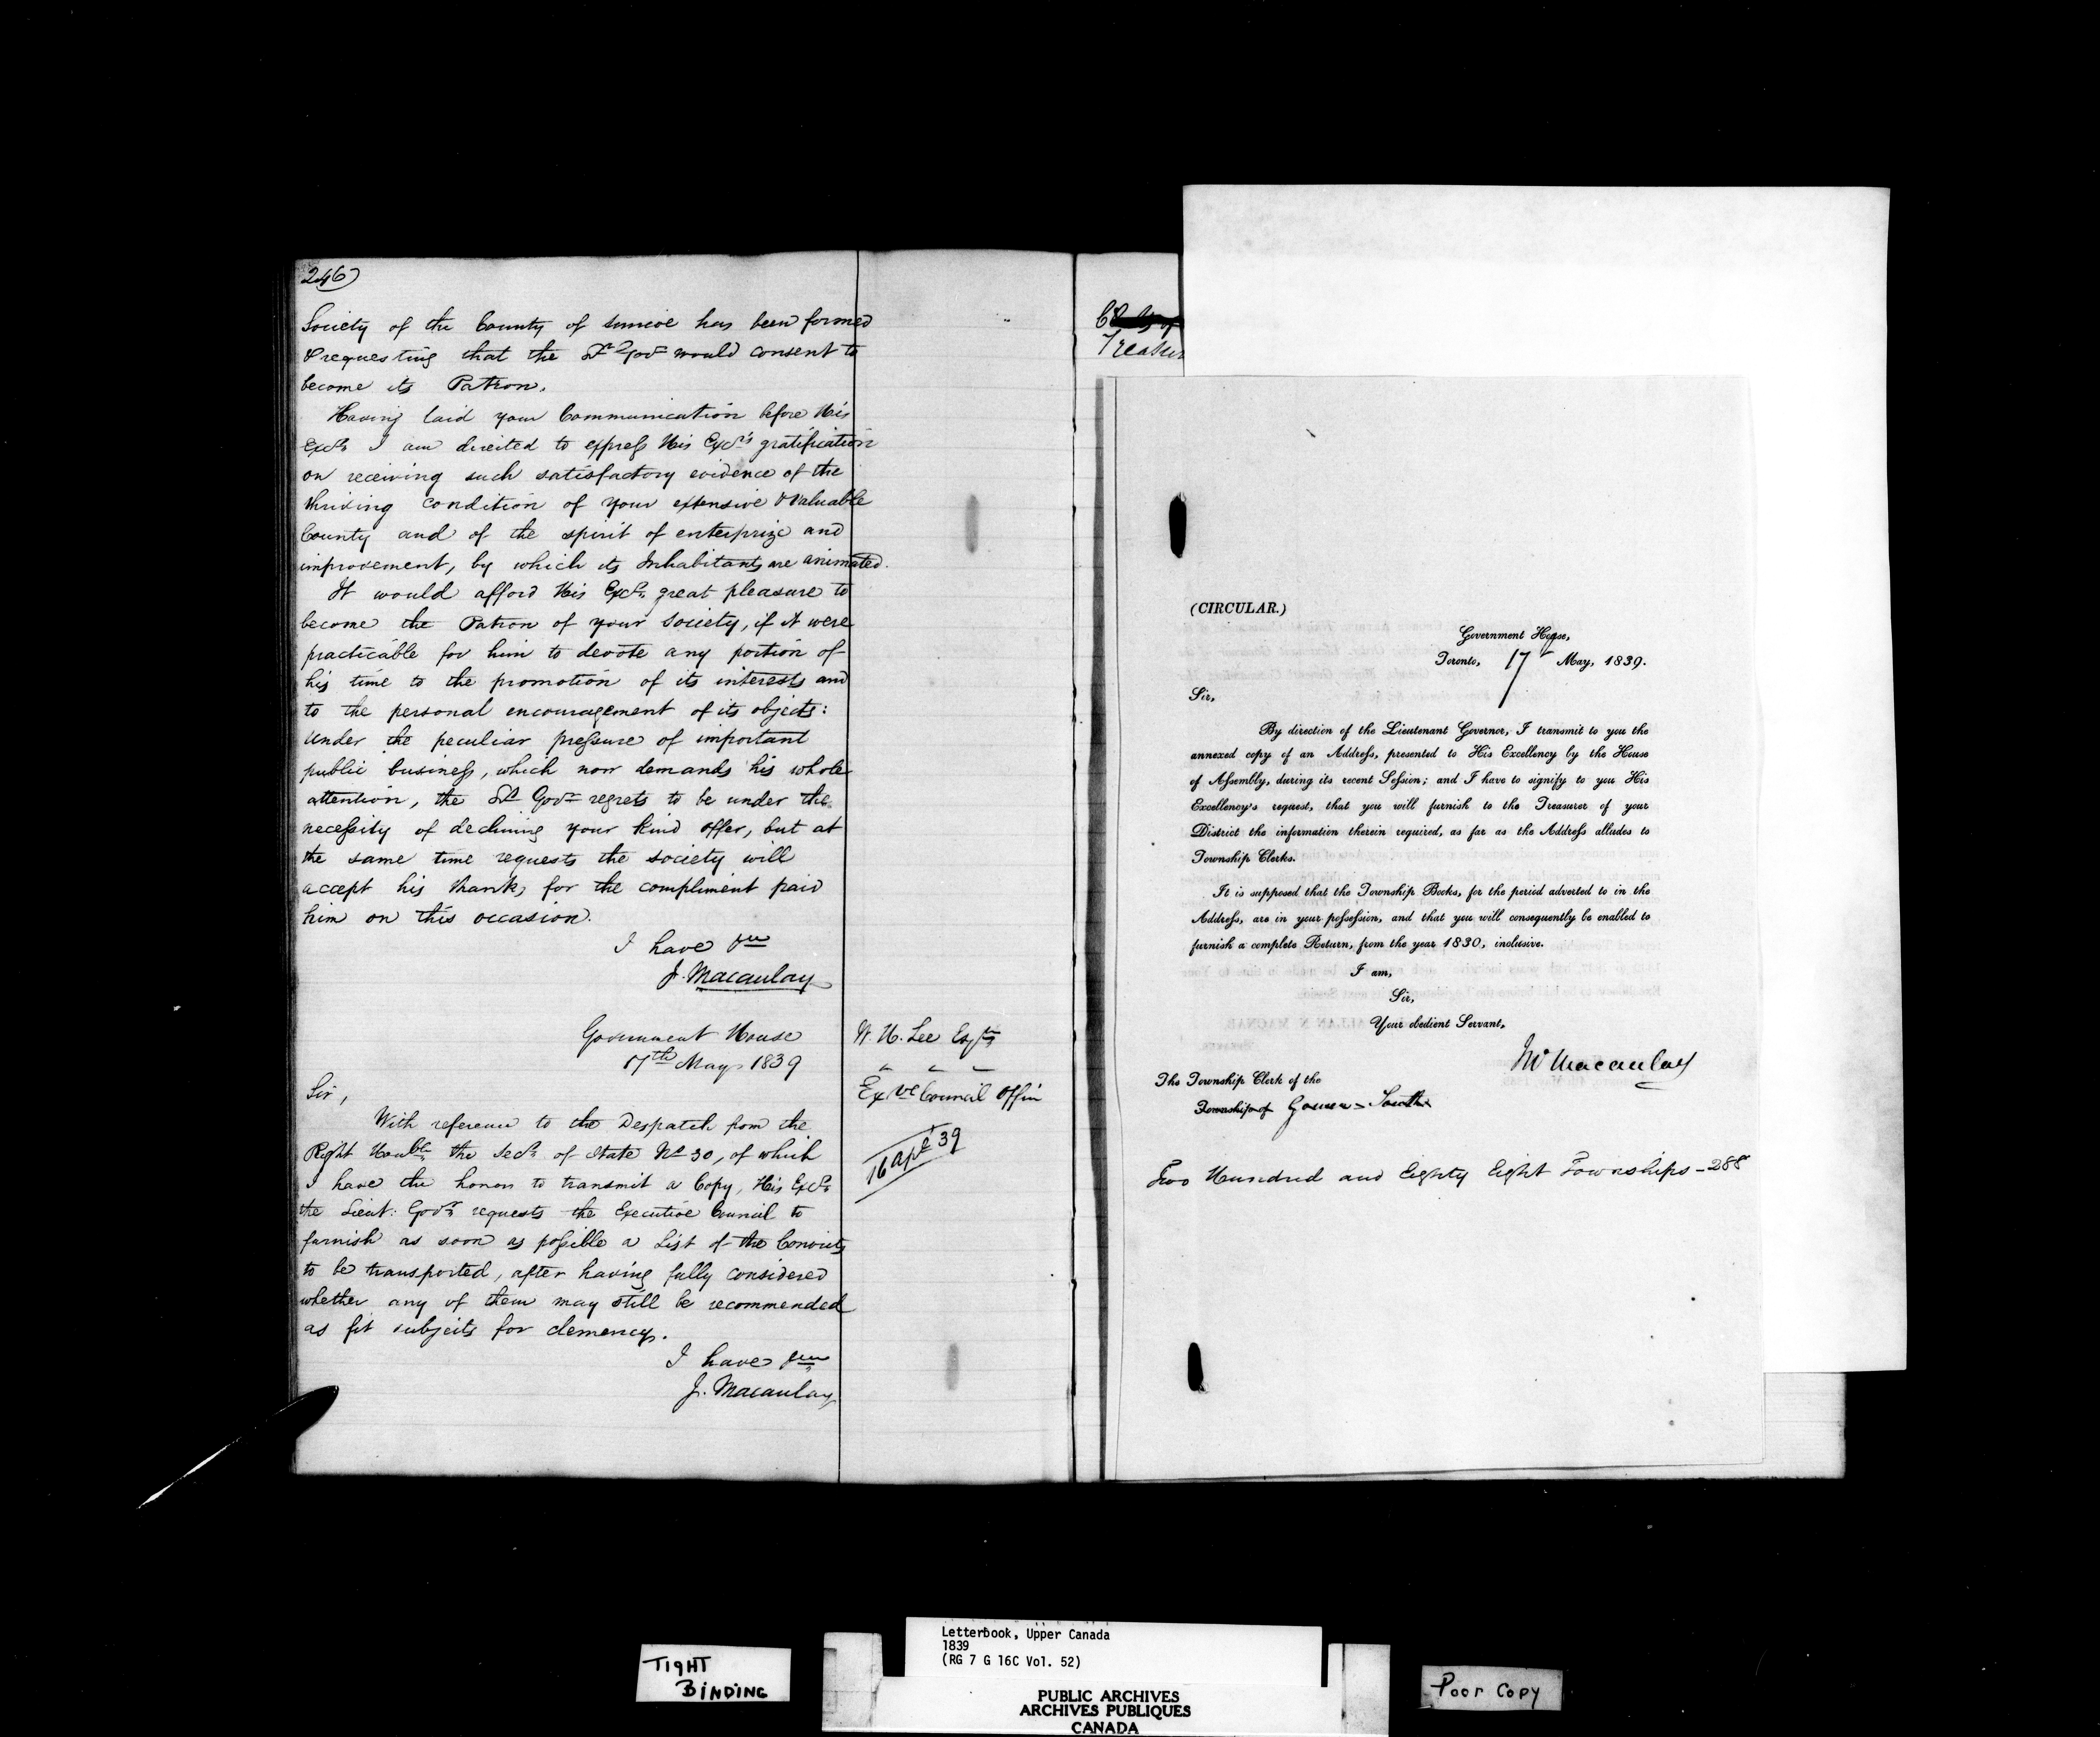 246)
Society of the County of Simcoe has been formed
& requesting that the Lt Govr would consent to
become its Patron.
Having laid your Communication before His
Excy I am directed to express His Excy's gratification
on receiving such satisfactory evidence of the
thriving condition of your extensive & valuable
County and of the spirit of enterprize and
improvement, by which its Inhabitants are animated.
It would afford His Excy great pleasure to
become the Patron of your Society, if it were
practicable for him to devote any portion of
his time to the promotion of its interests and
to the personal encouragement of its objects:
Under the peculiar pressure of important
public business, which now demands his whole
attention, the Lt Govr regrets to be under the
necessity of declining your kind offer, but at
the same time requests the society will
accept his thanks for the compliment paid
him on this occasion.
I have &c
J. Macaulay
Government House
17th May 1839
W. H. Lee Esqre
Exve Council Office
16 Apl 39
Sir,
With reference to the Despatch from the
Right Honble the Secy of State No 30, of which
I have the honor to transmit a Copy, His Excy
the Lieut: Govr requests the Executive Council to
furnish as soon as possible a List of the Convicts
to be transported, after having fully considered
whether any of them may still be recommended
as fit subjects for clemency.
I have &c
J. Macaulay
Treasur
(CIRCULAR.)
Government House,
Toronto, 17 May, 1839.
Sir,
By direction of the Lieutenant Governor, I transmit to you the
annexed copy of an Address, presented to His Excellency by the House
of Assembly, during its recent Session; and I have to signify to you His
Excellency's request, that you will furnish to the Treasurer of your
District the information therein required, as far as the Address alludes to
Township Clerks.
It is supposed that the Township Books, for the period adverted to in the
Address, are in your possession, and that you will consequently be enabled to
furnish a complete Return, from the year 1830, inclusive.
I am,
Sir,
Your obedient Servant,
Jno Macaulay
The Township Clerk of the
Township of Gower - South
Two Hundred and Eighty Eight Townships - 288
Letterbook, Upper Canada
1839
(RG 7 G 16C Vol. 52)
TIGHT
BINDING
PUBLIC ARCHIVES
ARCHIVES PUBLIQUES
CANADA
Poor Copy